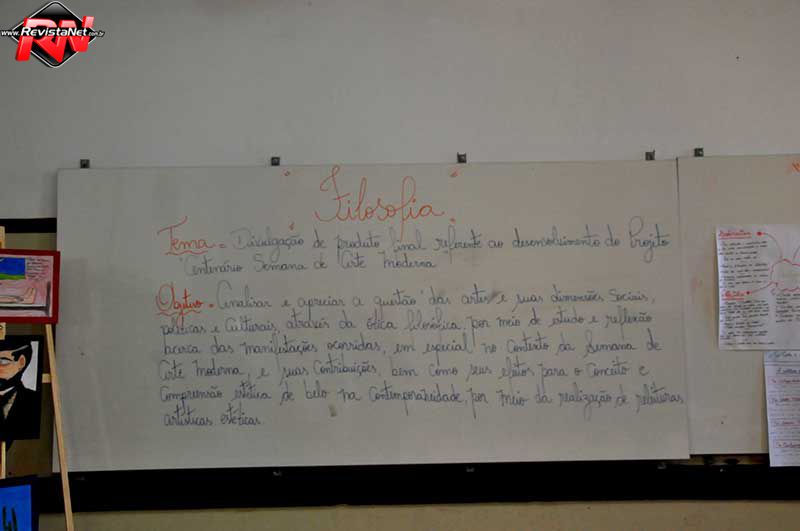 www.RevistaNet.com.br
RN
"Filosofia"
Tema = Divulgação de produto final referente ao desenvolvimento do Projeto
Centenário Semana de Arte Moderna
Objetivo = Analisar e apreciar a questão das artes e suas dimensões Sociais,
políticas e Culturais, através da ótica filosófica, por meio de estudo e reflexão
acerca das manifestações ocorridas, em especial no contexto da Semana de
Arte Moderna, e suas Contribuições, bem como seus efeitos para o Conceito e
Compreensão estética de belo na Contemporaneidade, por meio da realização de releituras
artísticas estéticas.